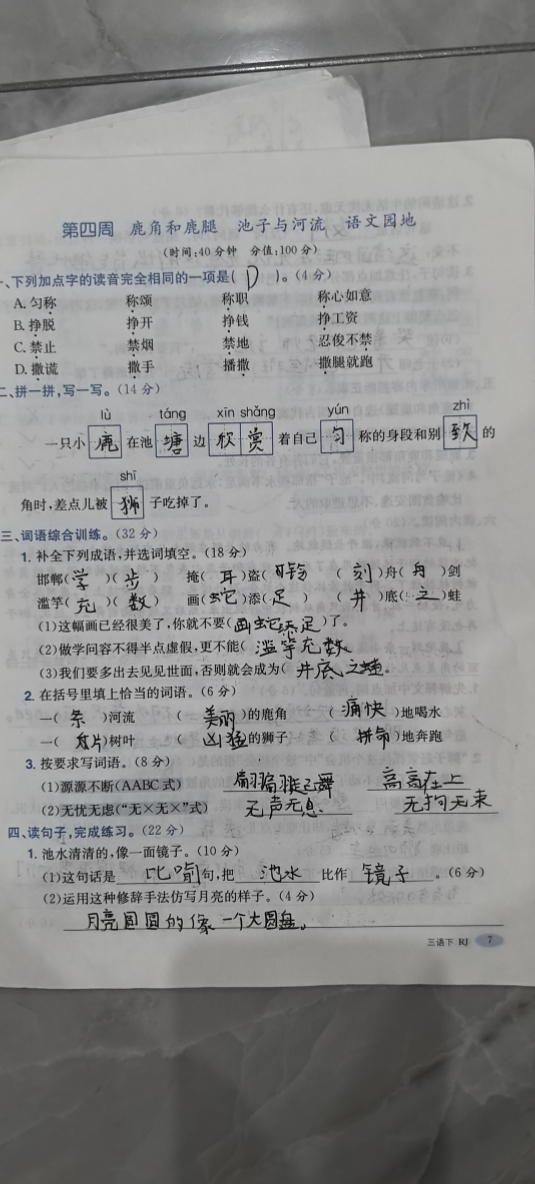 第四周 鹿角和鹿腿 池子与河流 语文园地
(时间:40分钟 分值:100分)
一、下列加点字的读音完全相同的一项是( D )。(4分)
A. 匀称 称颂 称职 称心如意
B. 挣脱 挣开 挣钱 挣工资
C. 禁止 禁烟 禁地 忍俊不禁
D. 撒谎 撒手 播撒 撒腿就跑
二、拼一拼,写一写。(14分)
lù táng xīn shǎng yún zhì
一只小鹿在池塘边欣赏着自己匀称的身段和别致的
shī
角时,差点儿被狮子吃掉了。
三、词语综合训练。(32分)
1. 补全下列成语,并选词填空。(18分)
邯郸(学)(步) 掩(耳)盗(铃) (刻)舟(舟)剑
滥竽(充)(数) 画(蛇)添(足) (井)底(之)蛙
(1)这幅画已经很美了,你就不要(画蛇添足)了。
(2)做学问容不得半点虚假,更不能(滥竽充数
(3)我们要多出去见见世面,否则就会成为(井底之蛙。
2. 在括号里填上恰当的词语。(6分)
一(条)河流 (美丽)的鹿角 (痛快)地喝水
一(片)树叶 (凶猛的狮子 (拼命)地奔跑
3. 按要求写词语。(8分)
(1)源源不断(AABC式) 翩翩起舞 高高在上
(2)无忧无虑(“无×无×”式) 无声无息. 无拘无束
四、读句子,完成练习。(22分)
1. 池水清清的,像一面镜子。(10分)
(1)这句话是比喻句,把池水比作镜子。(6分)
(2)运用这种修辞手法仿写月亮的样子。(4分)
月亮圆圆的像一个大圆盘。
三语下 RJ 7